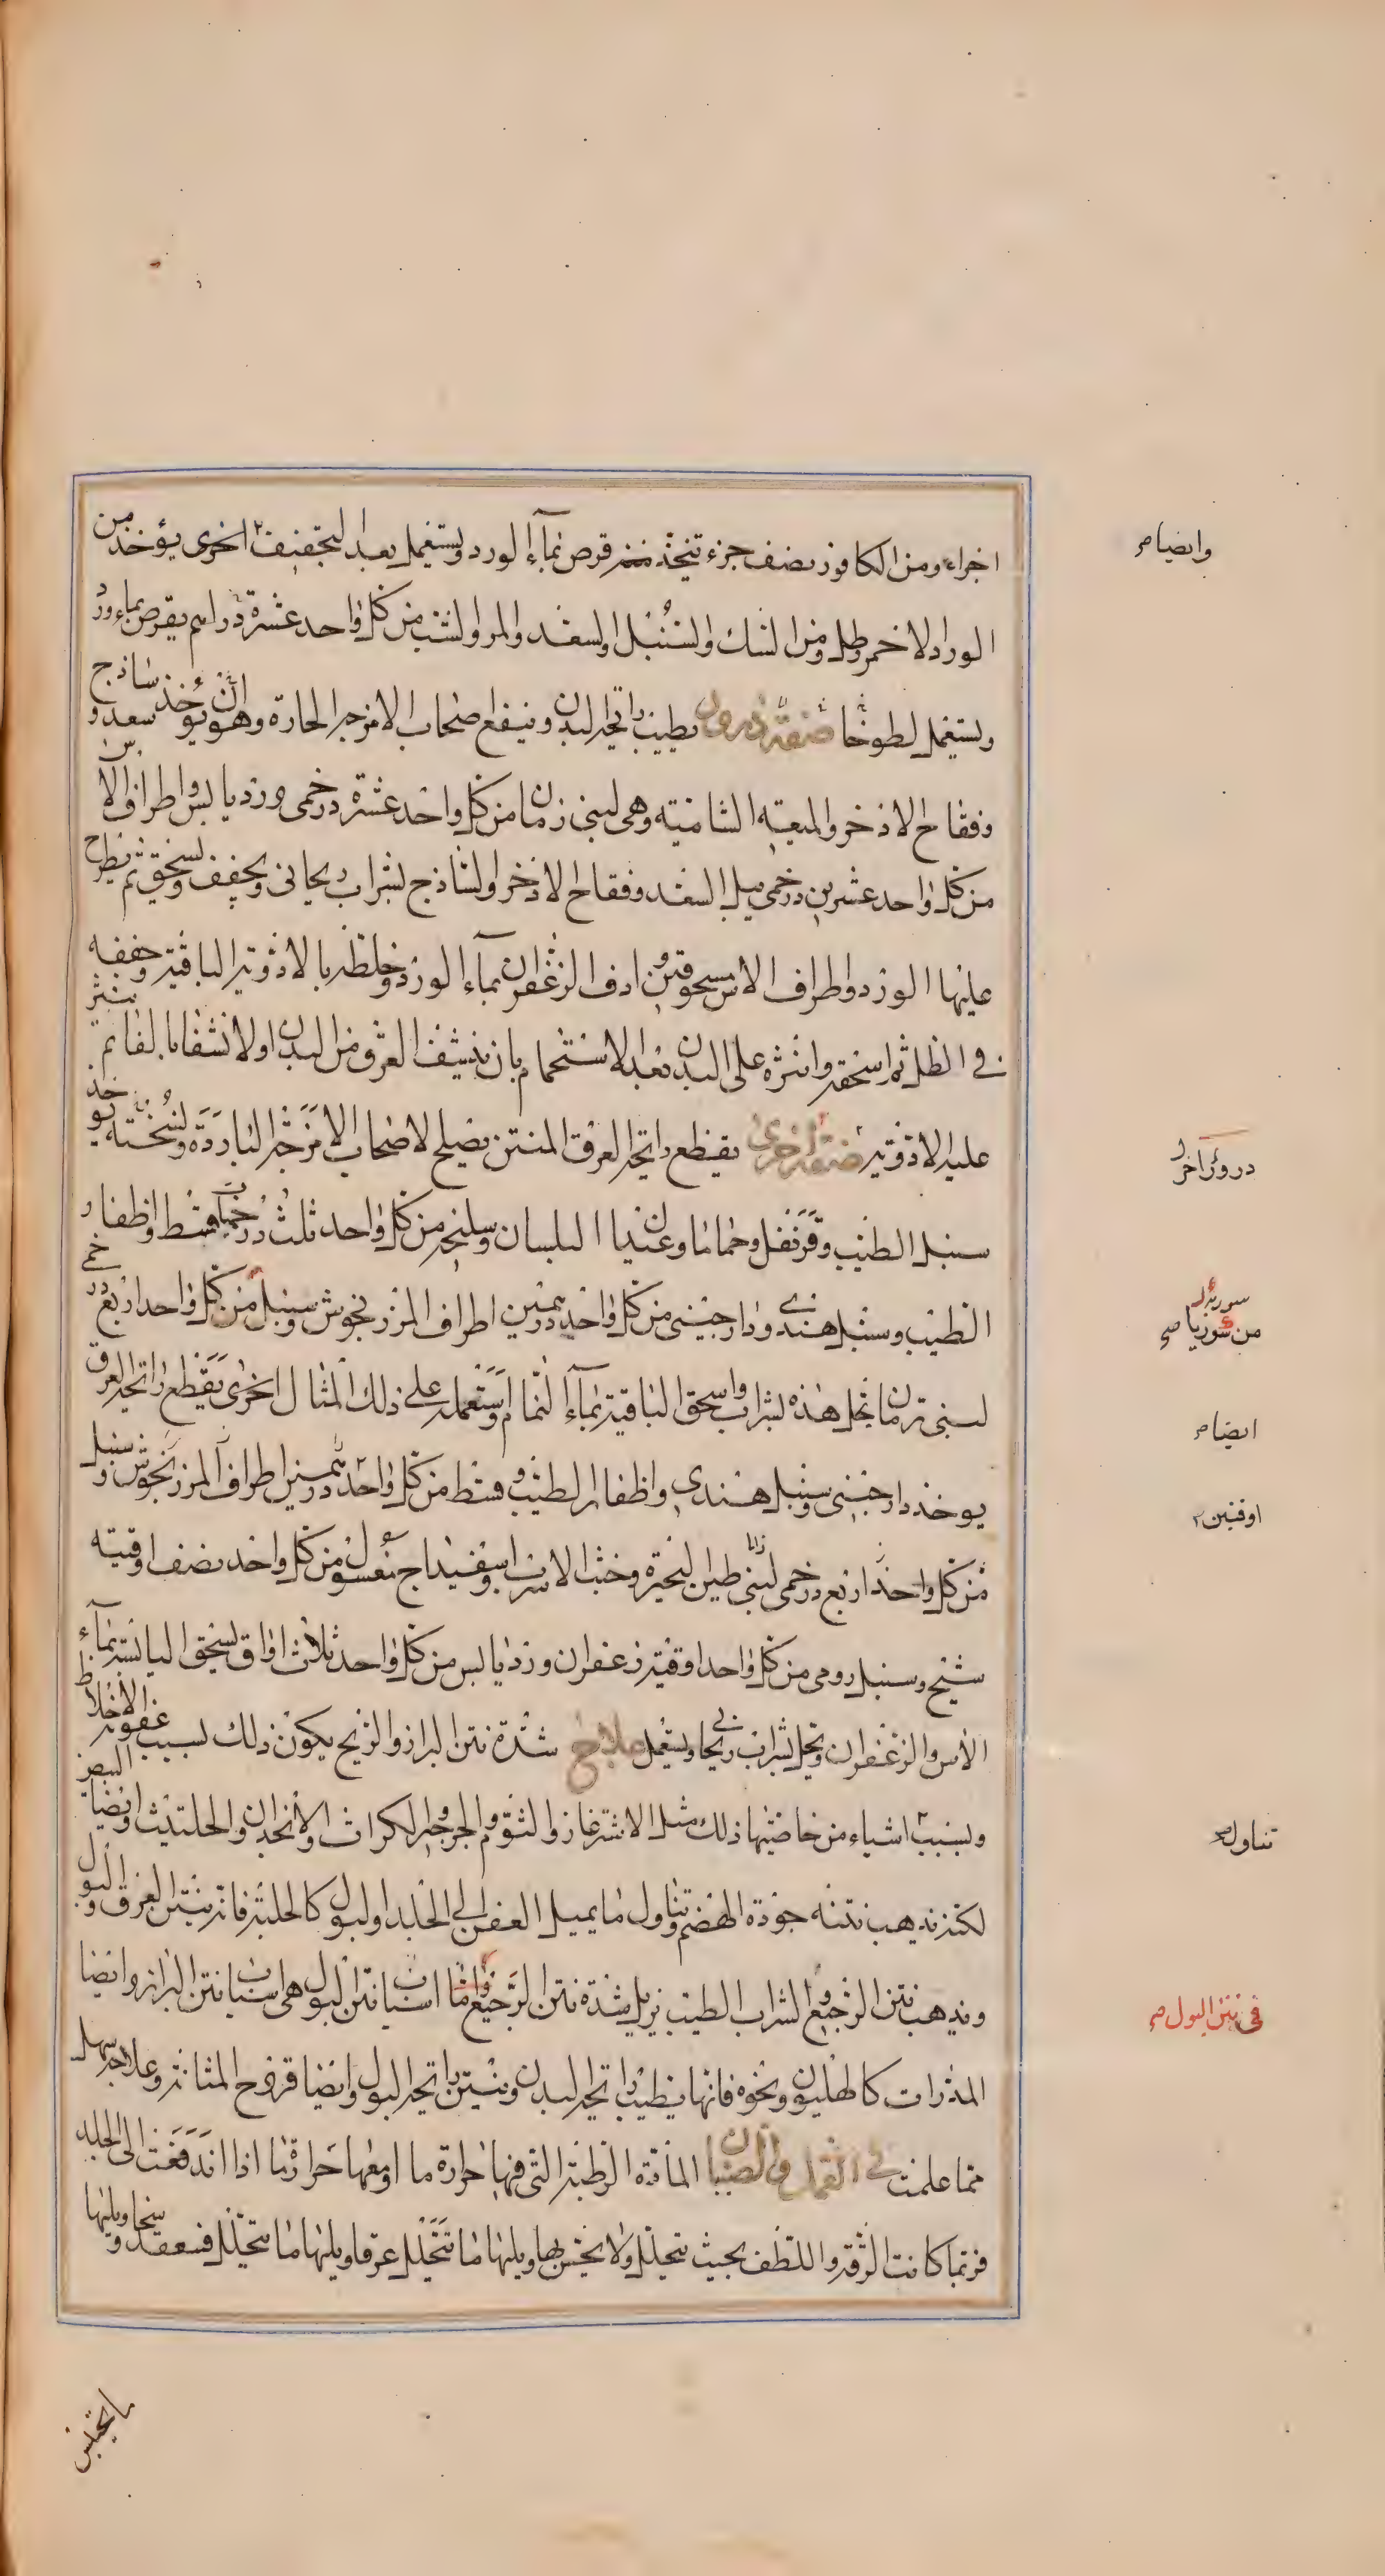 اجزاء ومن الكافور نصف جزء تتخذ منه قرص بماء الورد ويستعمل بعد التجفيف اخرى يؤخذ من
وايضا صح
الورد الاحمر رطل ومن السك والسنبل والسعد والمر والشب من كل واحد عشرة دراهم يقرص بماء ورد
ويستعمل لطوخا صفة ذرور يطيب رائحة البدن وينفع اصحاب الامزجة الحارة وهو ان يؤخذ ساذج سعد و
وفقاح الاذخر والميعة الشامية وهى لبنى رمان من كل واحد عشرة درخمى ورد يابس واطراف الآس
من كل واحد عشرين درخمى يبل السعد وفقاح الاذخر والساذج بشراب ريحانى ويجفف ويسحق ثم يطرح
عليها الورد واطراف الاس مسحوقين وادف الزعفران بماء الورد واخلطه بالادوية الباقية وجففه
فى الظل ثم اسحقه وانثره على البدن بعد الاستحمام بان ينشف العرق من البدن اولا نشفا بالغا ثم ينثر
عليه الادوية صفة اخرى يقطع رائحة العرق المنتن يصلح لاصحاب الامزجة الباردة ونسخته يوخذ
درور آخر
سنبل الطيب وقرنفل وحماما وعيدان البلسان وسليخة من كل واحد ثلث درخميات قسط واظفار
الطيب وسنبل هندى ودارجينى من كل واحد درهمين اطراف المرزنجوش وسنبل من كل واحد اربع درخمى
سوريا
من سوريا صح
لبنى رمان تحل هذه بشراب واسحق الباقية بماء النمام واستعمله على ذلك المثال اخرى يقطع رائحة العرق
ايضا صح
يوخذ دارجينى وسنبل هندى واظفار الطيب وقسط من كل واحد درهمين اطراف المرزنجوش وسنبل
اوقيتين
من كل واحد اربع درخمى لبنى طين البحيرة وخبث الاسرب واسفيداج مغسول من كل واحد نصف اوقية
شيح وسنبل رومى من كل واحد اوقية زعفران ورد يابس من كل واحد ثلاث اواق يسحق اليابسة بماء
الاس والزعفران ويحل بشراب ريحانى ويستعمل علاج شدة نتن البراز والريح يكون ذلك لسبب عفونة الاخلاط
وبسبب اشياء من خاصيتها ذلك مثل الاشترغاز والثوم والجرجير والكراث والانجدان والحلتيت وايضا البيض
تناول صح
لكنه يذهب نتنه جودة الهضم وتناول ما يميل العفن الى الجلد او البول كالحلبة فانه ينتن العرق والبول
ويذهب نتن الرجيع والشراب الطيب يزيل شدة نتن الرجيع واما اسباب نتن البول هى اسباب نتن البراز وايضا
فى نتن البول صح
المدرات كالهليون ونحوه فانها يطيب رائحة البدن وينتن رائحة البول وايضا قروح المثانة وعلاجه سهل
مما علمت فى القمل والصيبان المادة الرطبة التى فيها حرارة ما او معها حرارة ما اذا اندفعت الى الجلد
فربما كانت الرقة واللطف بحيث يتحلل ولا يحس بها ويليها ما يتحلل عرقا ويليها ما يتحلل فينعقد وسخا ويليها
ما يحتبس